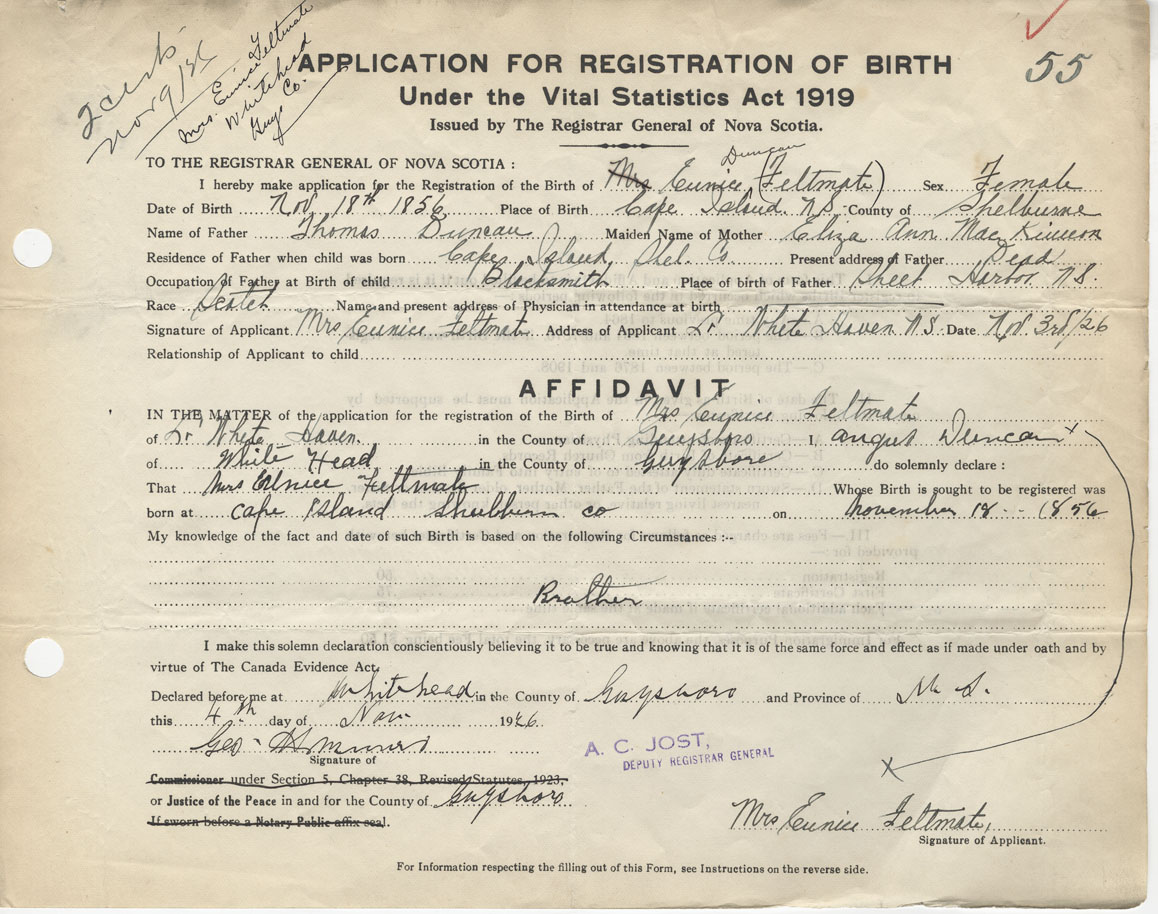 2 certs
Nov 9/36
Mrs. Eunice Feltmate
Whitehead
Guys Co.
55
APPLICATION FOR REGISTRATION OF BIRTH
Under the Vital Statistics Act 1919
Issued by The Registrar General of Nova Scotia.
TO THE REGISTRAR GENERAL OF NOVA SCOTIA :
Duncan
I hereby make application for the Registration of the Birth of Mrs Eunice (Feltmate) Sex Female
Date of Birth Nov 18th 1856 Place of Birth Cape Island N.S. County of Shelburne
Name of Father Thomas Duncan Maiden Name of Mother Eliza Ann MacKinnon
Residence of Father when child was born Cape Island, Shel. Co. Present address of Father Dead
Occupation of Father at Birth of child Blacksmith Place of birth of Father Sheet Harbor N.S.
Race Scotch Name and present address of Physician in attendance at birth
Signature of Applicant Mrs Eunice Feltmate Address of Applicant Lr. White Haven N.S. Date Nov. 3rd/26
Relationship of Applicant to child
AFFIDAVIT
IN THE MATTER of the application for the registration of the Birth of Mrs Eunice Feltmate
of Lr. White Haven. in the County of Guysboro I, angus Duncan x
of White Head in the County of Guysbore do solemnly declare :
That Mrs Eunice Feltmate Whose Birth is sought to be registered was
born at Cape Island Shelburn co on November 18 - 1856
My knowledge of the fact and date of such Birth is based on the following Circumstances :--
Brother
I make this solemn declaration conscientiously believing it to be true and knowing that it is of the same force and effect as if made under oath and by
virtue of The Canada Evidence Act.
Declared before me at Whitehead in the County of Guysboro and Province of N. S.
this 4th day of Nov 1926
Geo H Munro
Signature of
A. C. JOST,
DEPUTY REGISTRAR GENERAL
Commissioner under Section 5, Chapter 38, Revised Statutes, 1923,
x
or Justice of the Peace in and for the County of Guysboro
If sworn before a Notary Public affix seal.
Mrs Eunice Feltmate,
Signature of Applicant.
For Information respecting the filling out of this Form, see Instructions on the reverse side.